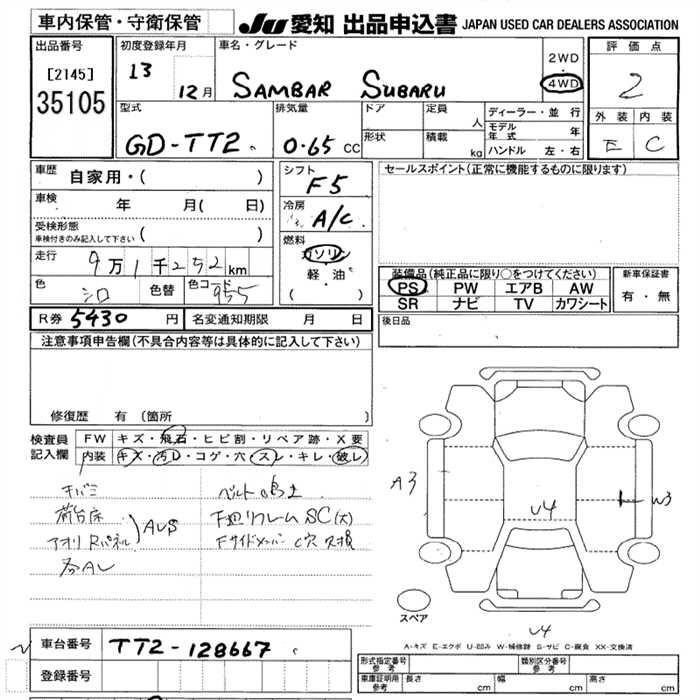 車内保管・守衛保管
JU 愛知 出品申込書 JAPAN USED CAR DEALERS ASSOCIATION
出品番号
[2145]
35105
初度登録年月
13 12月
車名・グレード
SAMBAR SUBARU
2WD
・
4WD
評価点
2
外装 内装
E C
型式
GD-TT2
排気量
0.65 CC
ドア
形状
定員 人
積載 kg
ディーラー・並行
モデル年式 年
ハンドル 左・右
車歴
自家用・( )
車検
年 月( 日)
受検形態
車検付きのみ記入して下さい ( )
走行
9万1千252km
色
シロ
色替
色コード
955
シフト
F5
冷房
A/C
燃料
ガソリン
・
軽・油
( )
セールスポイント(正常に機能するものに限ります)
装備品(純正品に限り○をつけてください)
PS PW エアB AW
SR ナビ TV カワシート
新車保証書
有・無
R券 5430 円
名変通知期限 月 日
後日品
注意事項申告欄(不具合内容等は具体的に記入して下さい)
修復歴 有(箇所 )
検査員記入欄
FW キズ・飛石・ヒビ割・リペア跡・X要
内装 キズ・汚レ・コゲ・穴・スレ・キレ・破レ
キバミ
荷台床
アオリ Rパネル
各AU
ベルト鳴キ
A3
W3
U4
スペア
U4
A-キズ E-エクボ U-凹み W-補修跡 S-サビ C-腐食 XX-交換済
車台番号
TT2-128667
登録番号
形式指定番号 参考
類別区分番号 参考
車庫証明用 参考
長さ cm
幅 cm
高さ cm